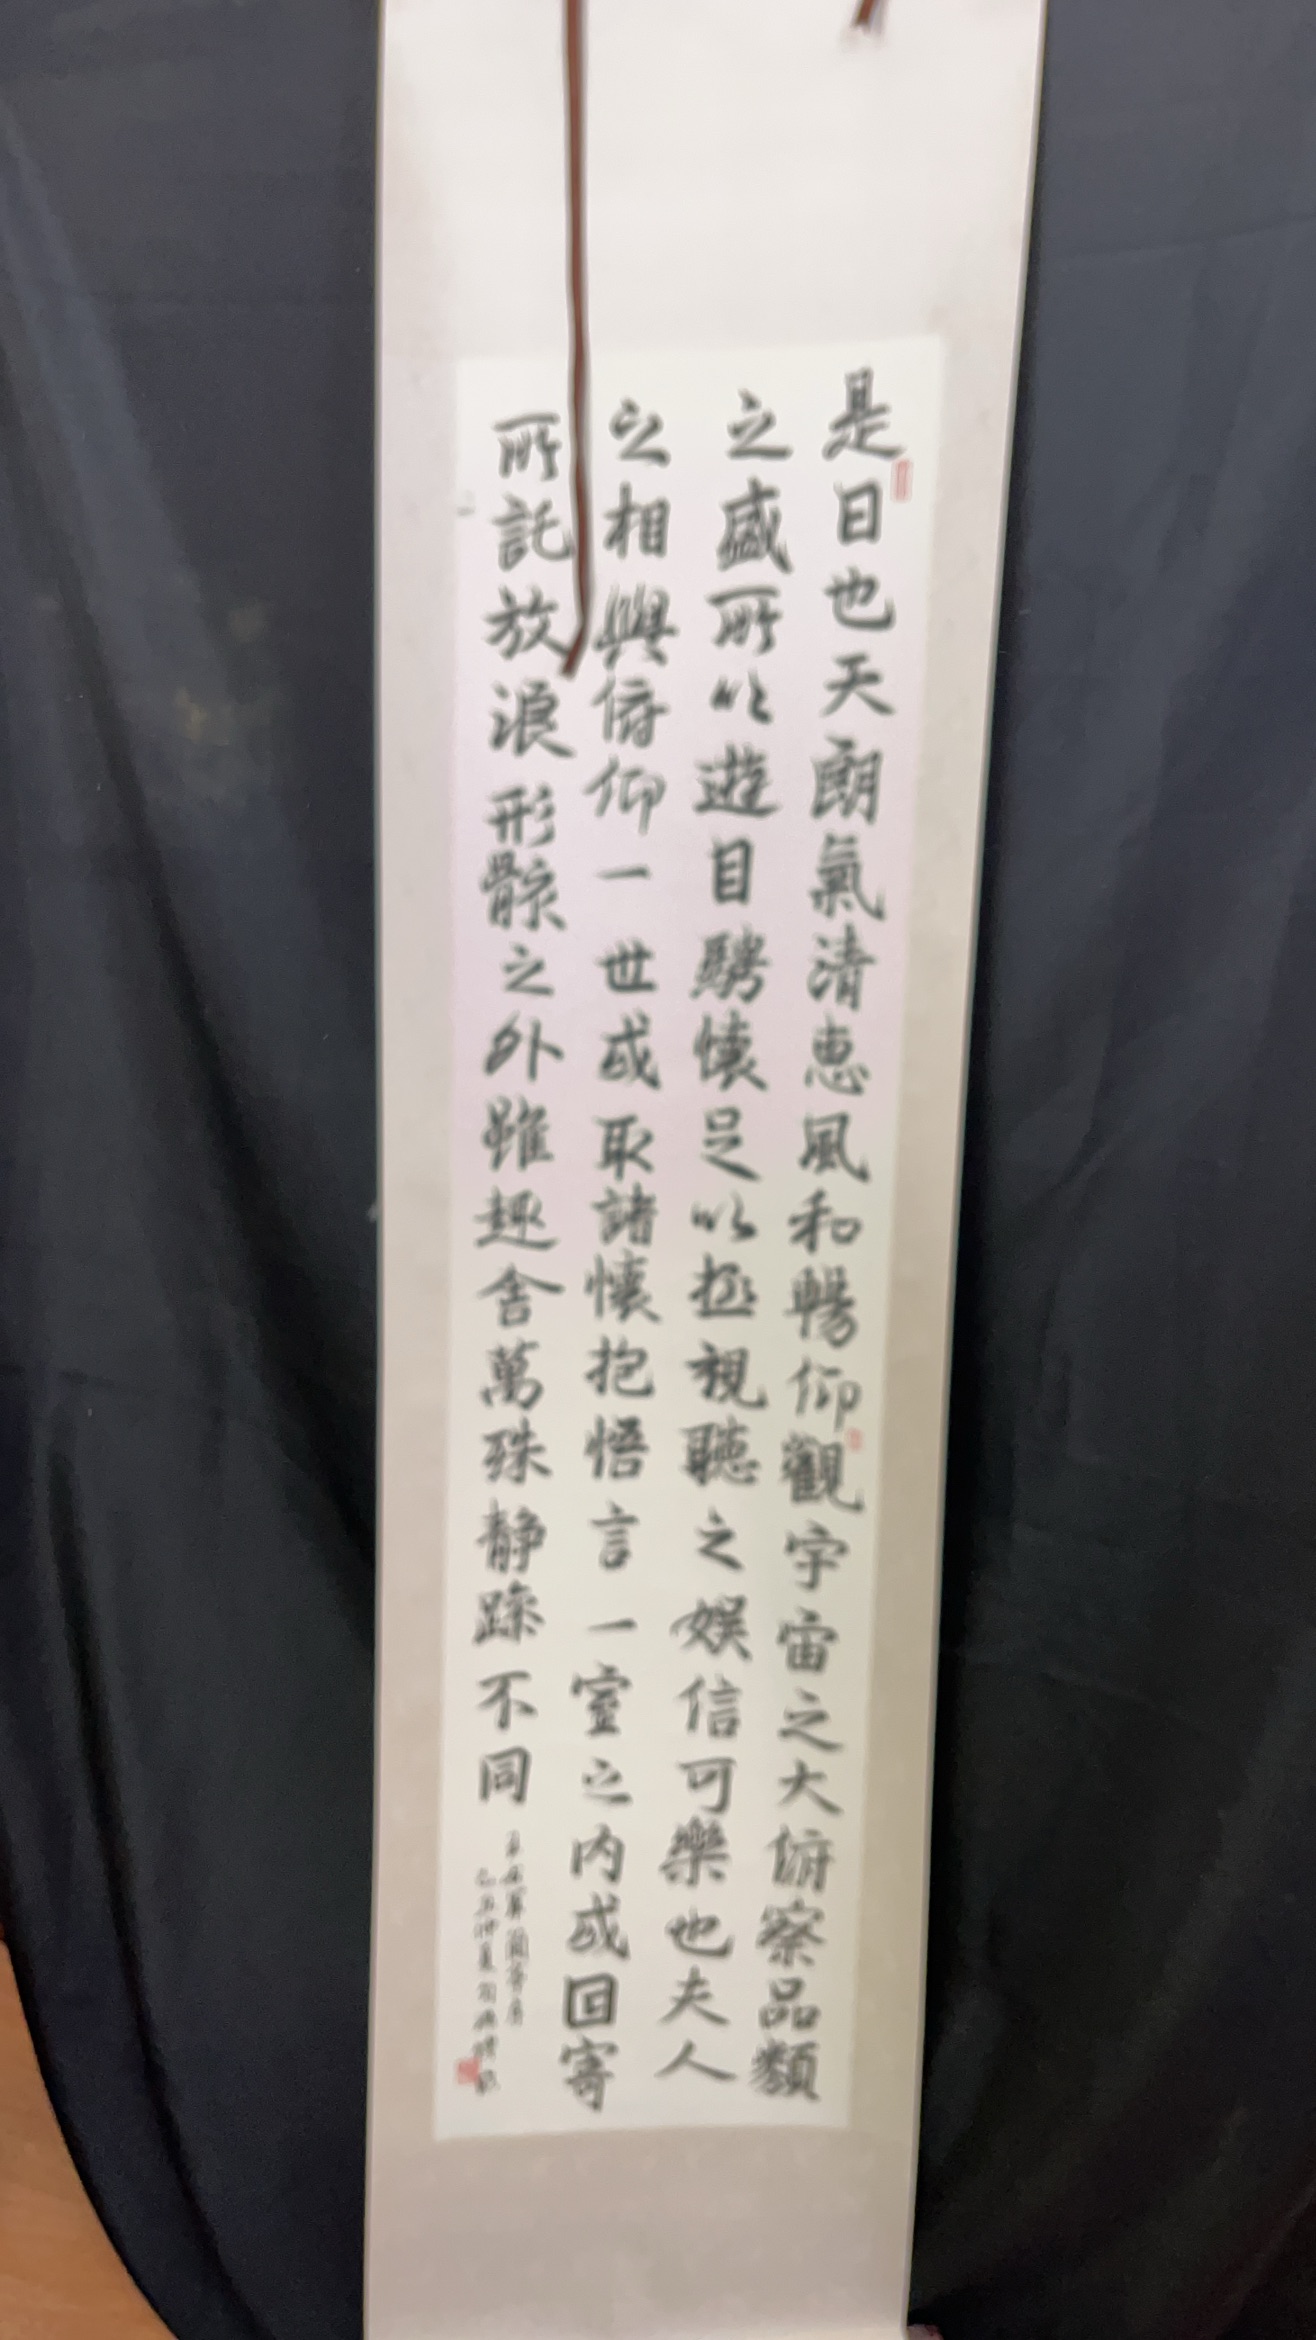 是日也天朗氣清惠風和暢仰觀宇宙之大俯察品類
之盛所以遊目騁懷足以極視聽之娛信可樂也夫人
之相與俯仰一世或取諸懷抱悟言一室之內或因寄
所託放浪形骸之外雖趣舍萬殊靜躁不同
王右軍蘭亭序
乙丑仲夏